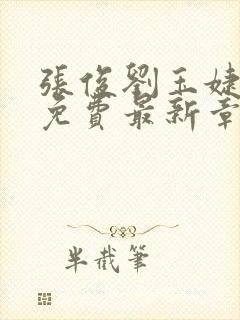 張俊劉玉婕
免費最新章
半截筆